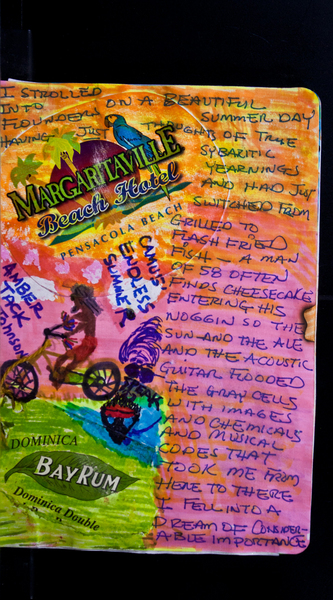 I STROLLED
INTO ON A BEAUTIFUL
FLOUNDERS SUMMER DAY
HAVING JUST THOUGHTS OF TRUE
SYBARITIC
YEARNINGS
AND HAD JUST
SWITCHED FROM
GRILLED TO
FLASH FRIED
FISH — A MAN
OF 58 OFTEN
FINDS CHEESECAKE
ENTERING HIS
NOGGIN SO THE
SUN AND THE ALE
AND THE ACOUSTIC
GUITAR FLOODED
THE GRAY CELLS
WITH IMAGES
AND CHEMICALS
AND MUSICAL
CODES THAT
TOOK ME FROM
HERE TO THERE
I FELL INTO A
DREAM OF CONSIDER-
ABLE IMPORTANCE
MARGARITAVILLE
Beach Hotel
PENSACOLA BEACH
CAMUS
ENDLESS
SUMMER
AMBER
JACK
DOMINICA
BAY RUM
Dominica Double